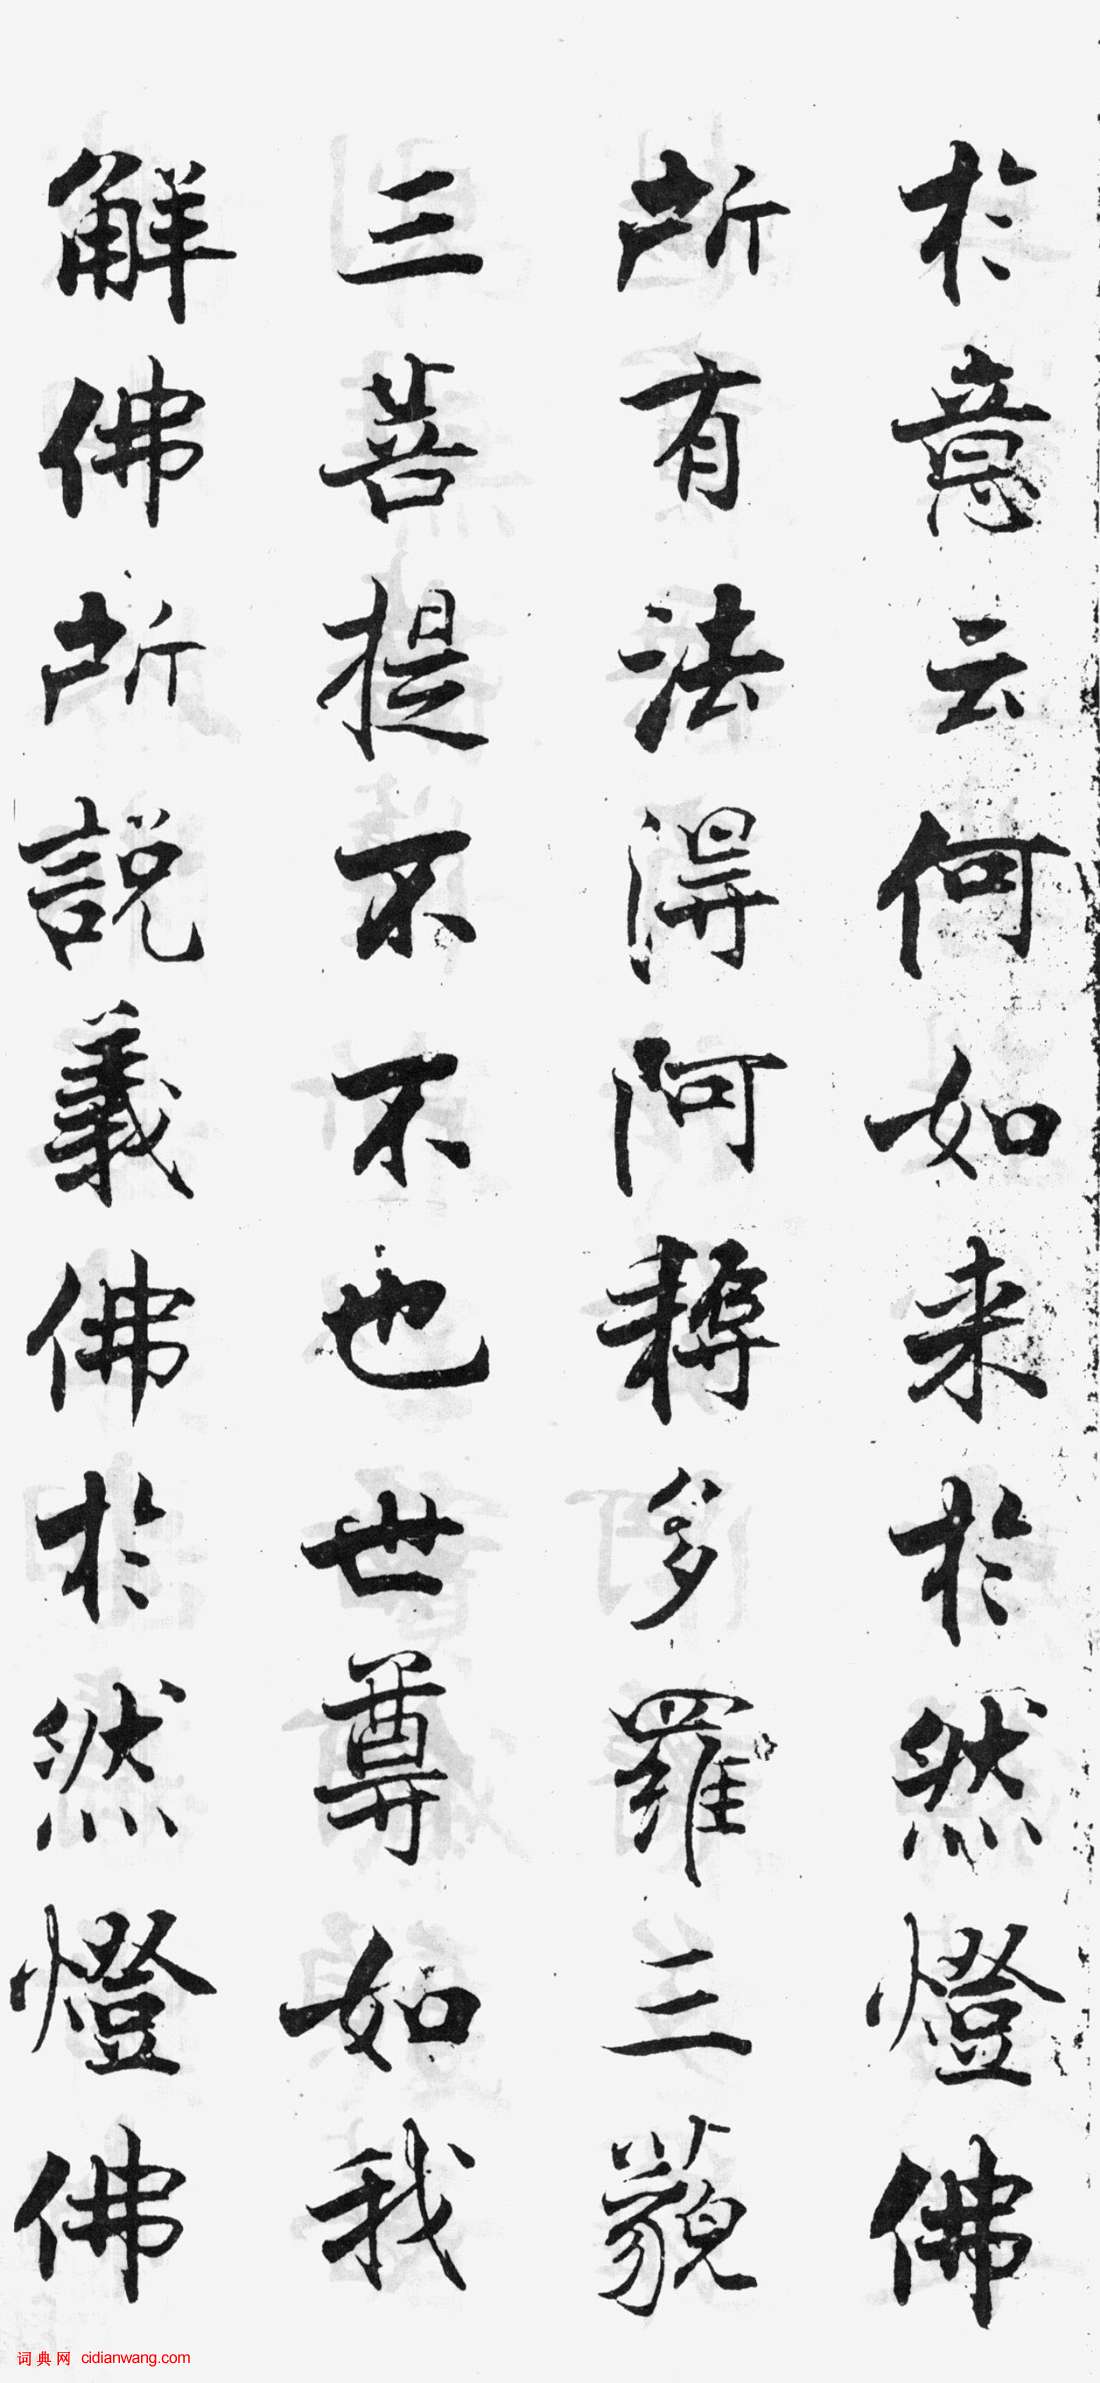 於意云何如来於然燈佛
所有法得阿耨多羅三藐
三菩提不不也世尊如我
解佛所説義佛於然燈佛
词典网 cidianwang.com